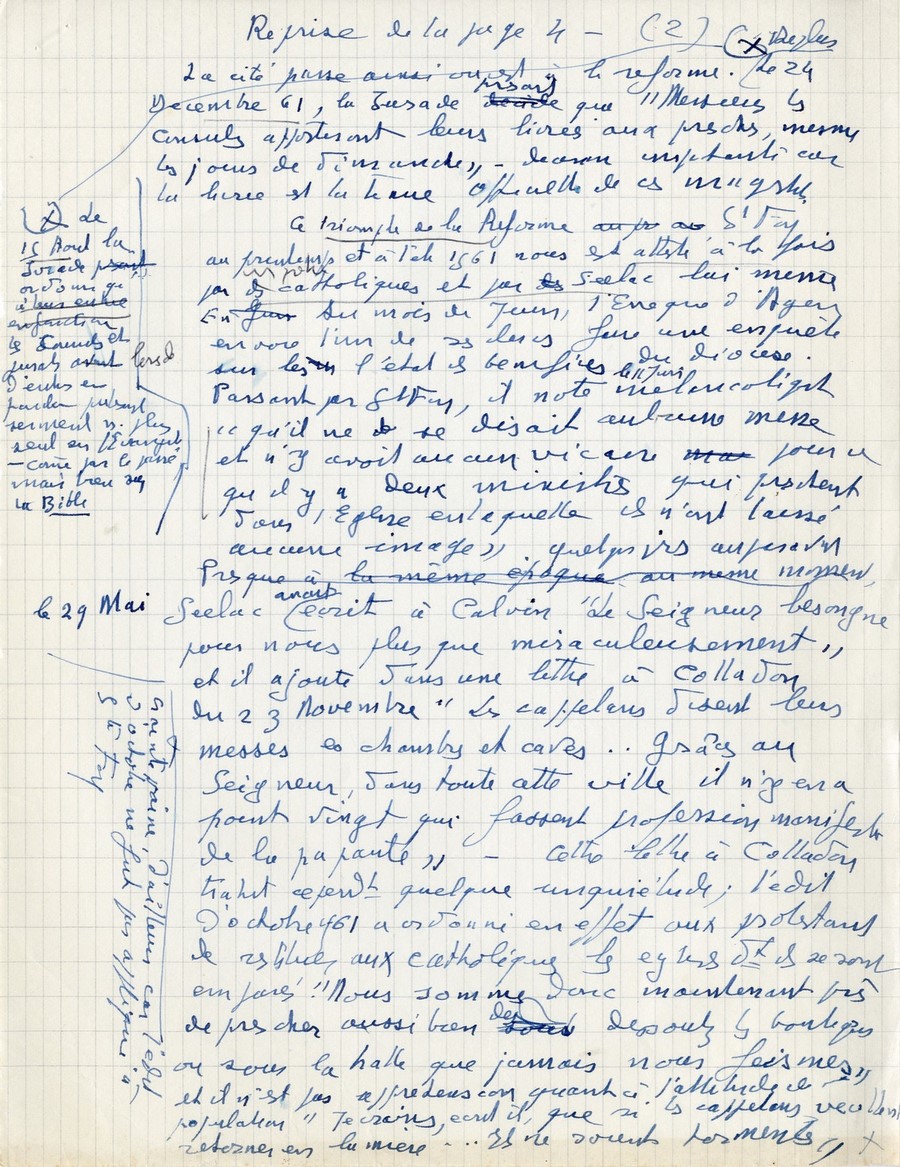 Reprise de la page 4 - (2)
La cité passe ainsi à la réforme. Le 24
Décembre 61, la Jurade que "Messieurs les
Consuls apporteront leurs livrées aux presches, mesme
les jours de Dimanche,, - car
la livrée est la tenue officielle de ces magistr.
Ce triomphe de la Réforme à Ste Foy
au printemps et à l'été 1561 nous est attesté à la fois
par les catholiques et par Seelac lui même
En du mois de Juin, l'Eveque d'Agen
envoie l'un de ses clercs faire une enquête
sur l'état des bénéfices du diocèse.
Passant par Ste Foy, le 11 Juin, il note mélancoliqt
"qu'il ne se disait aulcune messe
et n'y avoit aucun vicaire pour ce
qu'il y a deux ministres qui preschent
dans l'Eglise en laquelle ils n'ont laissé
aucune image,, . quelques jrs auparavant
Presque à la même époque, au même moment,
le 29 Mai Seelac écrit à Calvin "Le Seigneur besongne
pour nous plus que miraculeusement,,
et il ajoute dans une lettre à Colladon
du 23 Novembre "Les cappelans disent leurs
messes es chambres et caves .. Grâces au
Seigneur, dans toute cette ville il n'y en a
point vingt qui fassent profession manifeste
de la papauté,, - Cette lettre à Colladon
trahit cependt quelque inquiétude ; l'édit
d'octobre 1561 a ordonné en effet aux protestants
de restituer aux catholiques les eglises dt ils se sont
emparés "Nous sommes donc maintenant près
de prescher aussi bien dessoubs les boutiques
ou sous la halle que jamais nous feismes,,
et il n'est pas sans appréhension quant à l'attitude de la
population "Je crains, écrit-il, que si les cappelans veullent
retorner en lumière ... Ils ne soient tormentés,, X
(X) Le
15 Aout la
Jurade
ordonne qu'
à leur entrée
en fonction
les Consuls et
jurats lors de
d'entrer en
prêtent
serment n. plus
seult sur l'Evangile
- come par le passé
mais bien sur
la Bible
Crainte vaine, d'ailleurs car l'édit
d'octobre ne fut pas appliqué à
Ste Foy